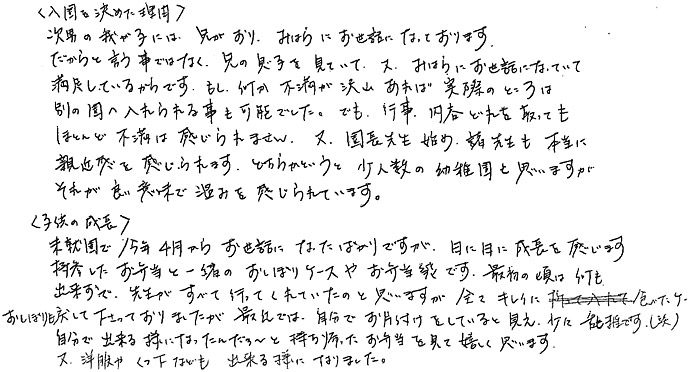 〈入園を決めた理由〉
次男の我が子には、兄がおり、みはらにお世話になっております。
だからと言う事ではなく、兄の息子を見ていて、又、みはらにお世話になっていて
満足しているからです。もし、何か不満が沢山あれば実際のところは
別の園へ入れられる事も可能でした。でも、行事、内容どれを取っても
ほとんど不満は感じられません。又、園長先生始め、諸先生も本当に
親近感を感じられます。どちらかというと少人数の幼稚園と思いますが
それが良い意味で温みを感じられています。
〈子供の成長〉
未就園で15年4月からお世話になったばかりですが、日に日に成長を感じます
持参したお弁当と一緒のおしぼりケースやお弁当袋です。最初の頃は何も
出来ずで、先生がすべて行ってくれていたのと思いますが全てキレイに 食べたケー
おしぼりも戻して下さっておりましたが最近では、自分でお片付けをしていると見え、少々乱雑です。(笑)
自分で出来る様になったんだな～と持ち帰ったお弁当を見て嬉しく思います。
又、洋服やくつ下なども出来る様になりました。